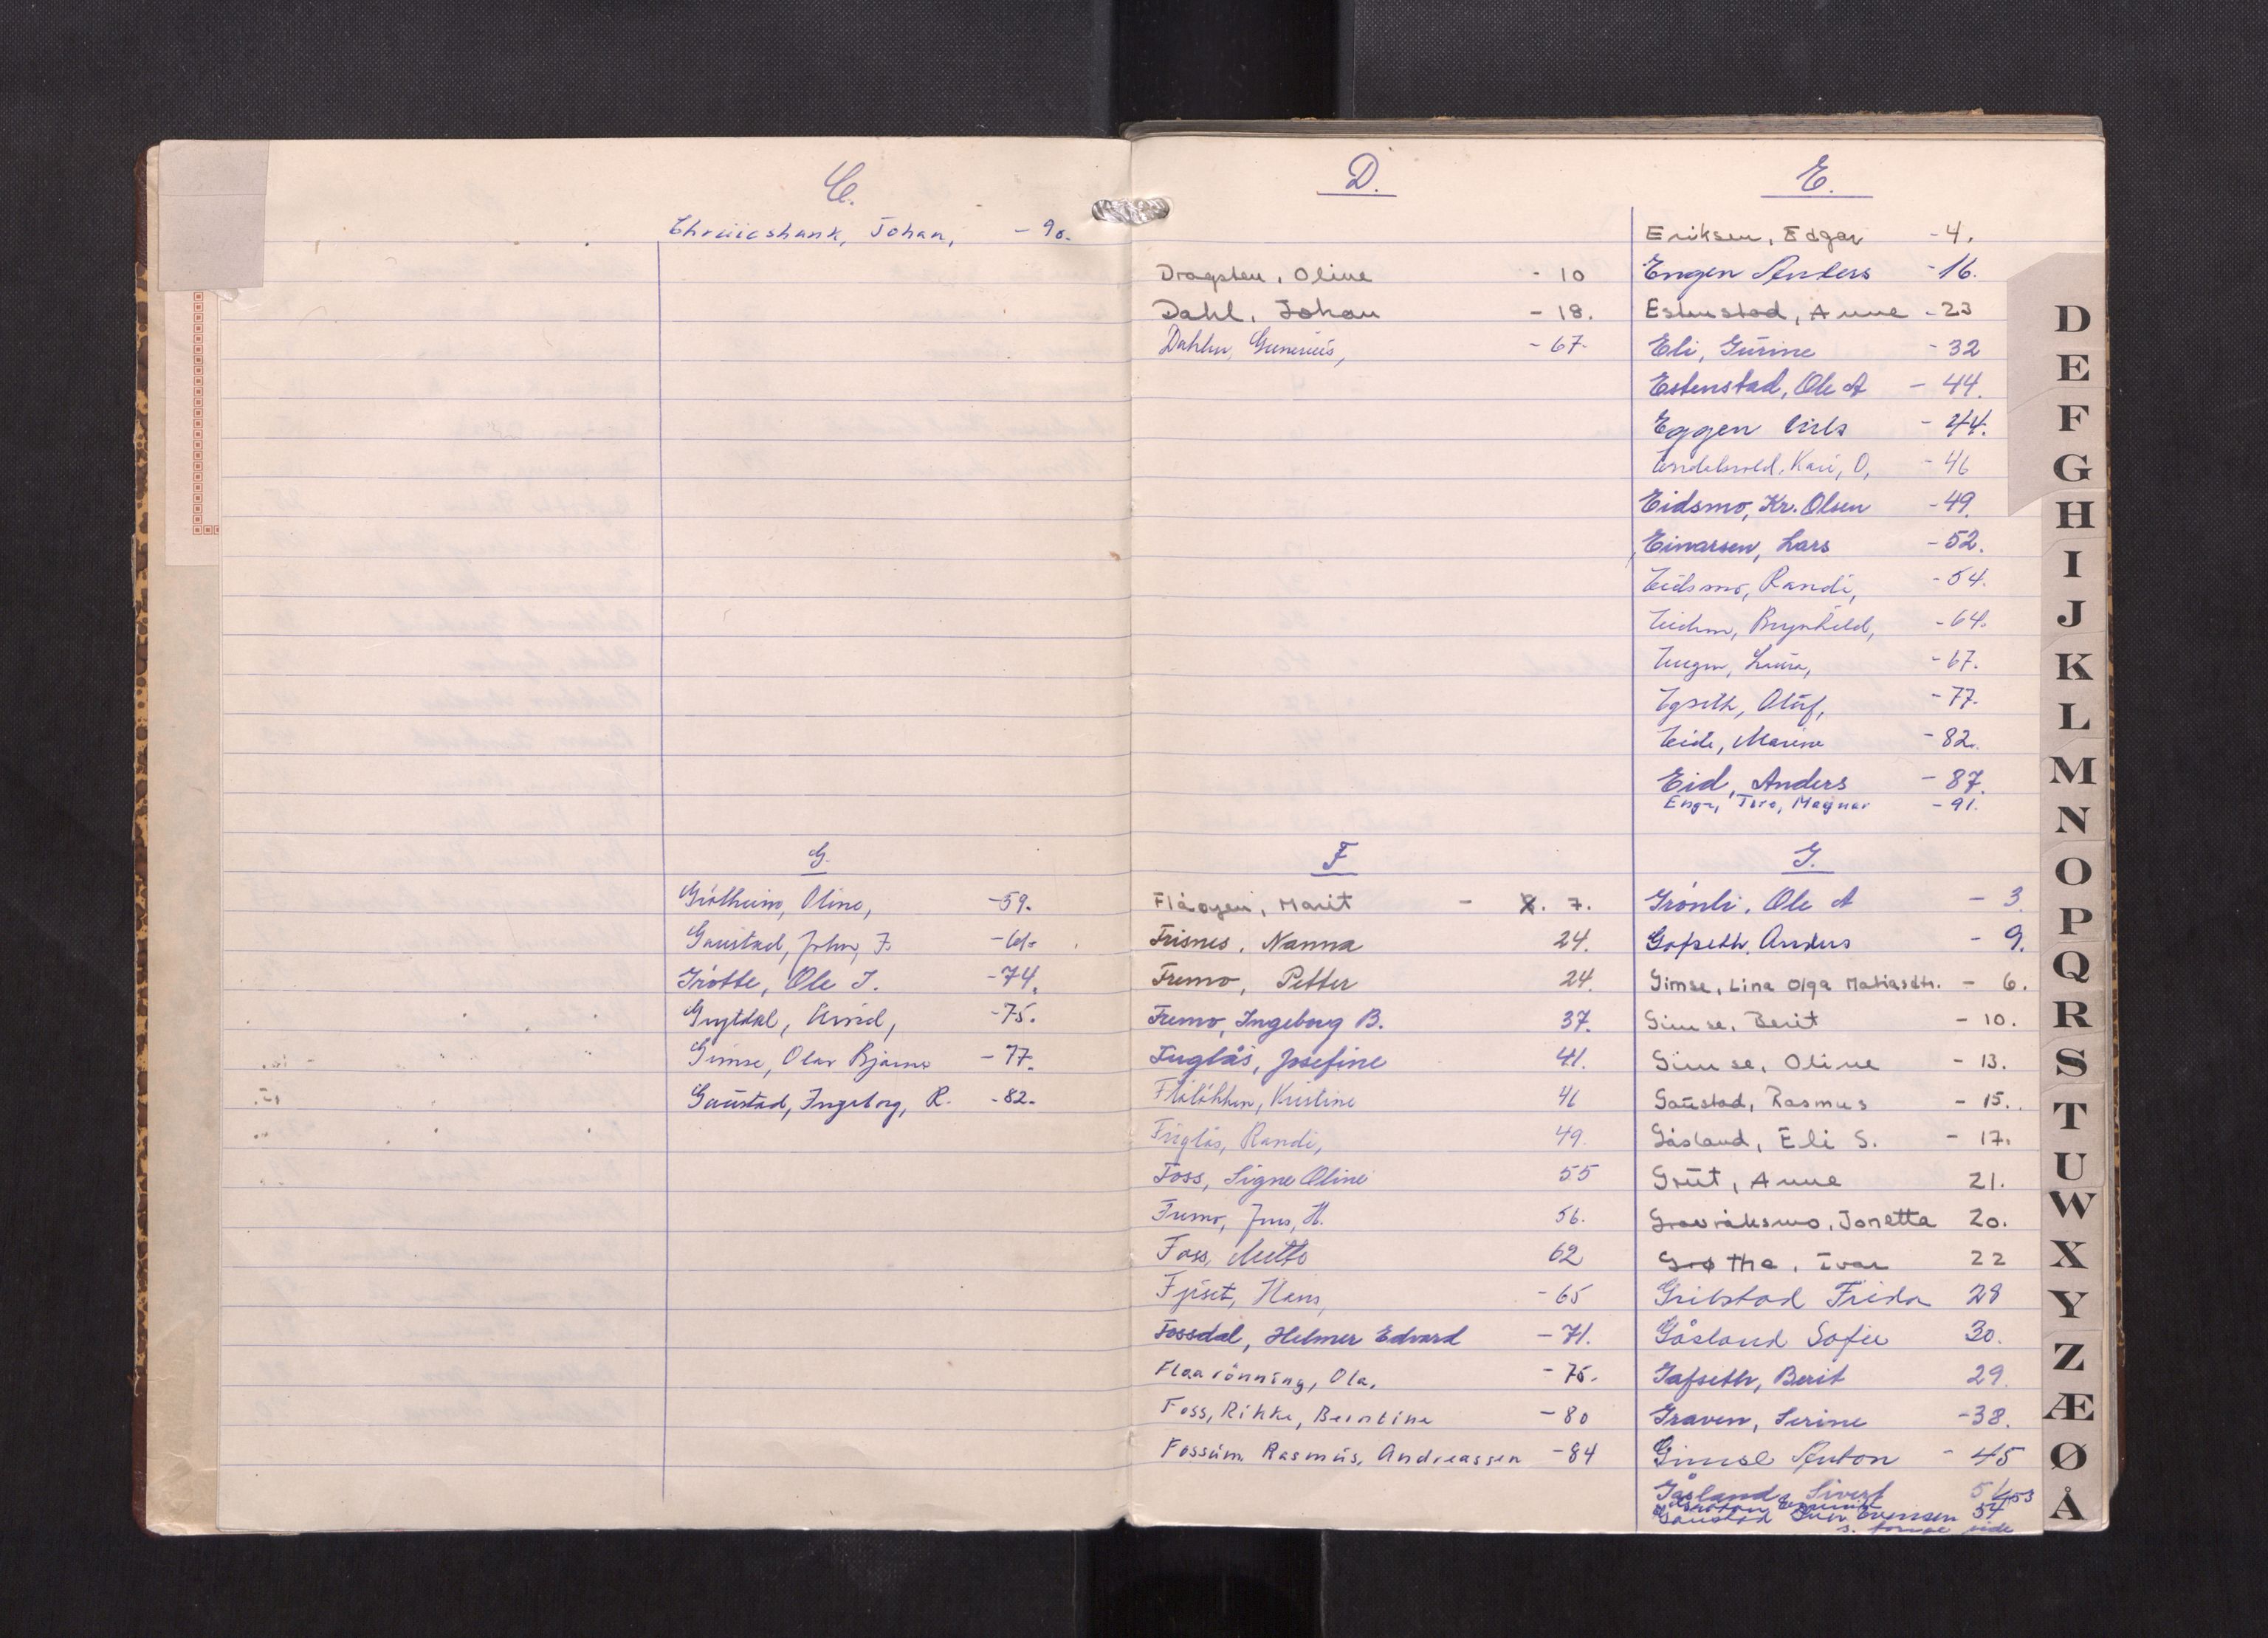 C.
Chruicshank, Johan, - 90.
G.
Gråtheim, Oline, -59.
Gaustad, John, J. -61.
Grötte, Ole J. -74.
Grytdal, Arnid, -75.
Gimse, Olav Bjarne -77.
Gaustad, Ingeborg, R. -82.
D.
Dragsten, Oline - 10
Dahl, Johan - 18.
Dahlen, Gunerius, - 67.
E.
Eriksen, Edgar -4.
Engen Anders -16.
Estenstad, Anne -23
Eli, Gurine -32
Estenstad, Ole A - 44.
Eggen Nils - 44.
Kari, O, - 46
Eidsmo, Kr. Olsen -49.
Einarsen, Lars -52.
Eidsmo, Randi, -54.
Brynhild, -64.
Engen, -67.
Egseth, Oluf, -77.
Eide, Marine -82.
Eid, Anders - 87.
Engen, Tore, Magnar -91.
F
Flåøyen, Marit - 7.
Frisnes, Nanna 24.
Fremo, Petter 24.
Fremo, Ingeborg B. 37.
Fuglås, Josefine 41.
Flåløkken, Kristine 46
Fuglås, Randi, 49.
Foss, Signe Oline 55
Fremo, Jens, H. 56.
Foss, Mette 62
Fjeset, Hans, -65
Fossdal, Helmer Edvard -71.
Flaarönning, Ola. -75.
Foss, Rikke, Berntine -80
Fossum Rasmus, Andreassen -84
G.
Grönli, Ole A - 3
Gafseth Anders - 9.
Gimse, Lina Olga Matiasdtr. - 6.
Gimse, Berit - 10.
Gimse, Oline - 13.
Gaustad, Rasmus - 15.
Gåsland, Eli S. - 17.
Grut, Anne 21.
Gravråksmo, Jonetta 20.
Grøthe, Ivar 22
Gribstad Frida 28
Gåsland Sofie 30.
Gafseth, Berit 29.
Graven, Serine -38.
Gimse Anton - 45
Gåsland, Sivert 53
Gaustad Evensen 54
s. forrige side
D
E
F
G
H
I
J
K
L
M
N
O
P
Q
R
S
T
U
W
X
Y
Z
Æ
Ø
Å